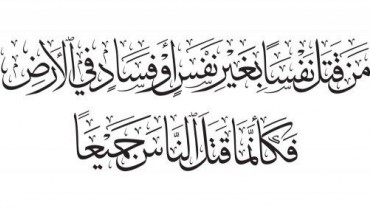 مَن قَتَلَ نَفْسًا بِغَيْرِ نَفْسٍ أَوْ فَسَادٍ فِي ٱلْأَرْضِ
فَكَأَنَّمَا قَتَلَ ٱلنَّاسَ جَمِيعًا